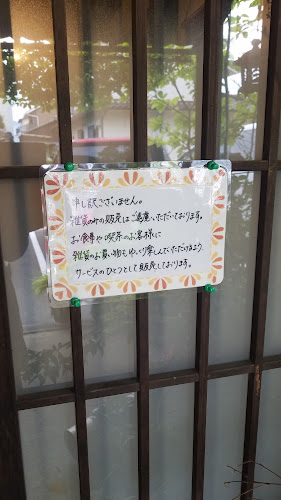 申し訳ございません。
雑貨のみの販売はご遠慮いただいております。
お食事や喫茶のお客様に
雑貨のお買い物もゆっくり楽しんでいただけるよう、
サービスのひとつとして販売しております。